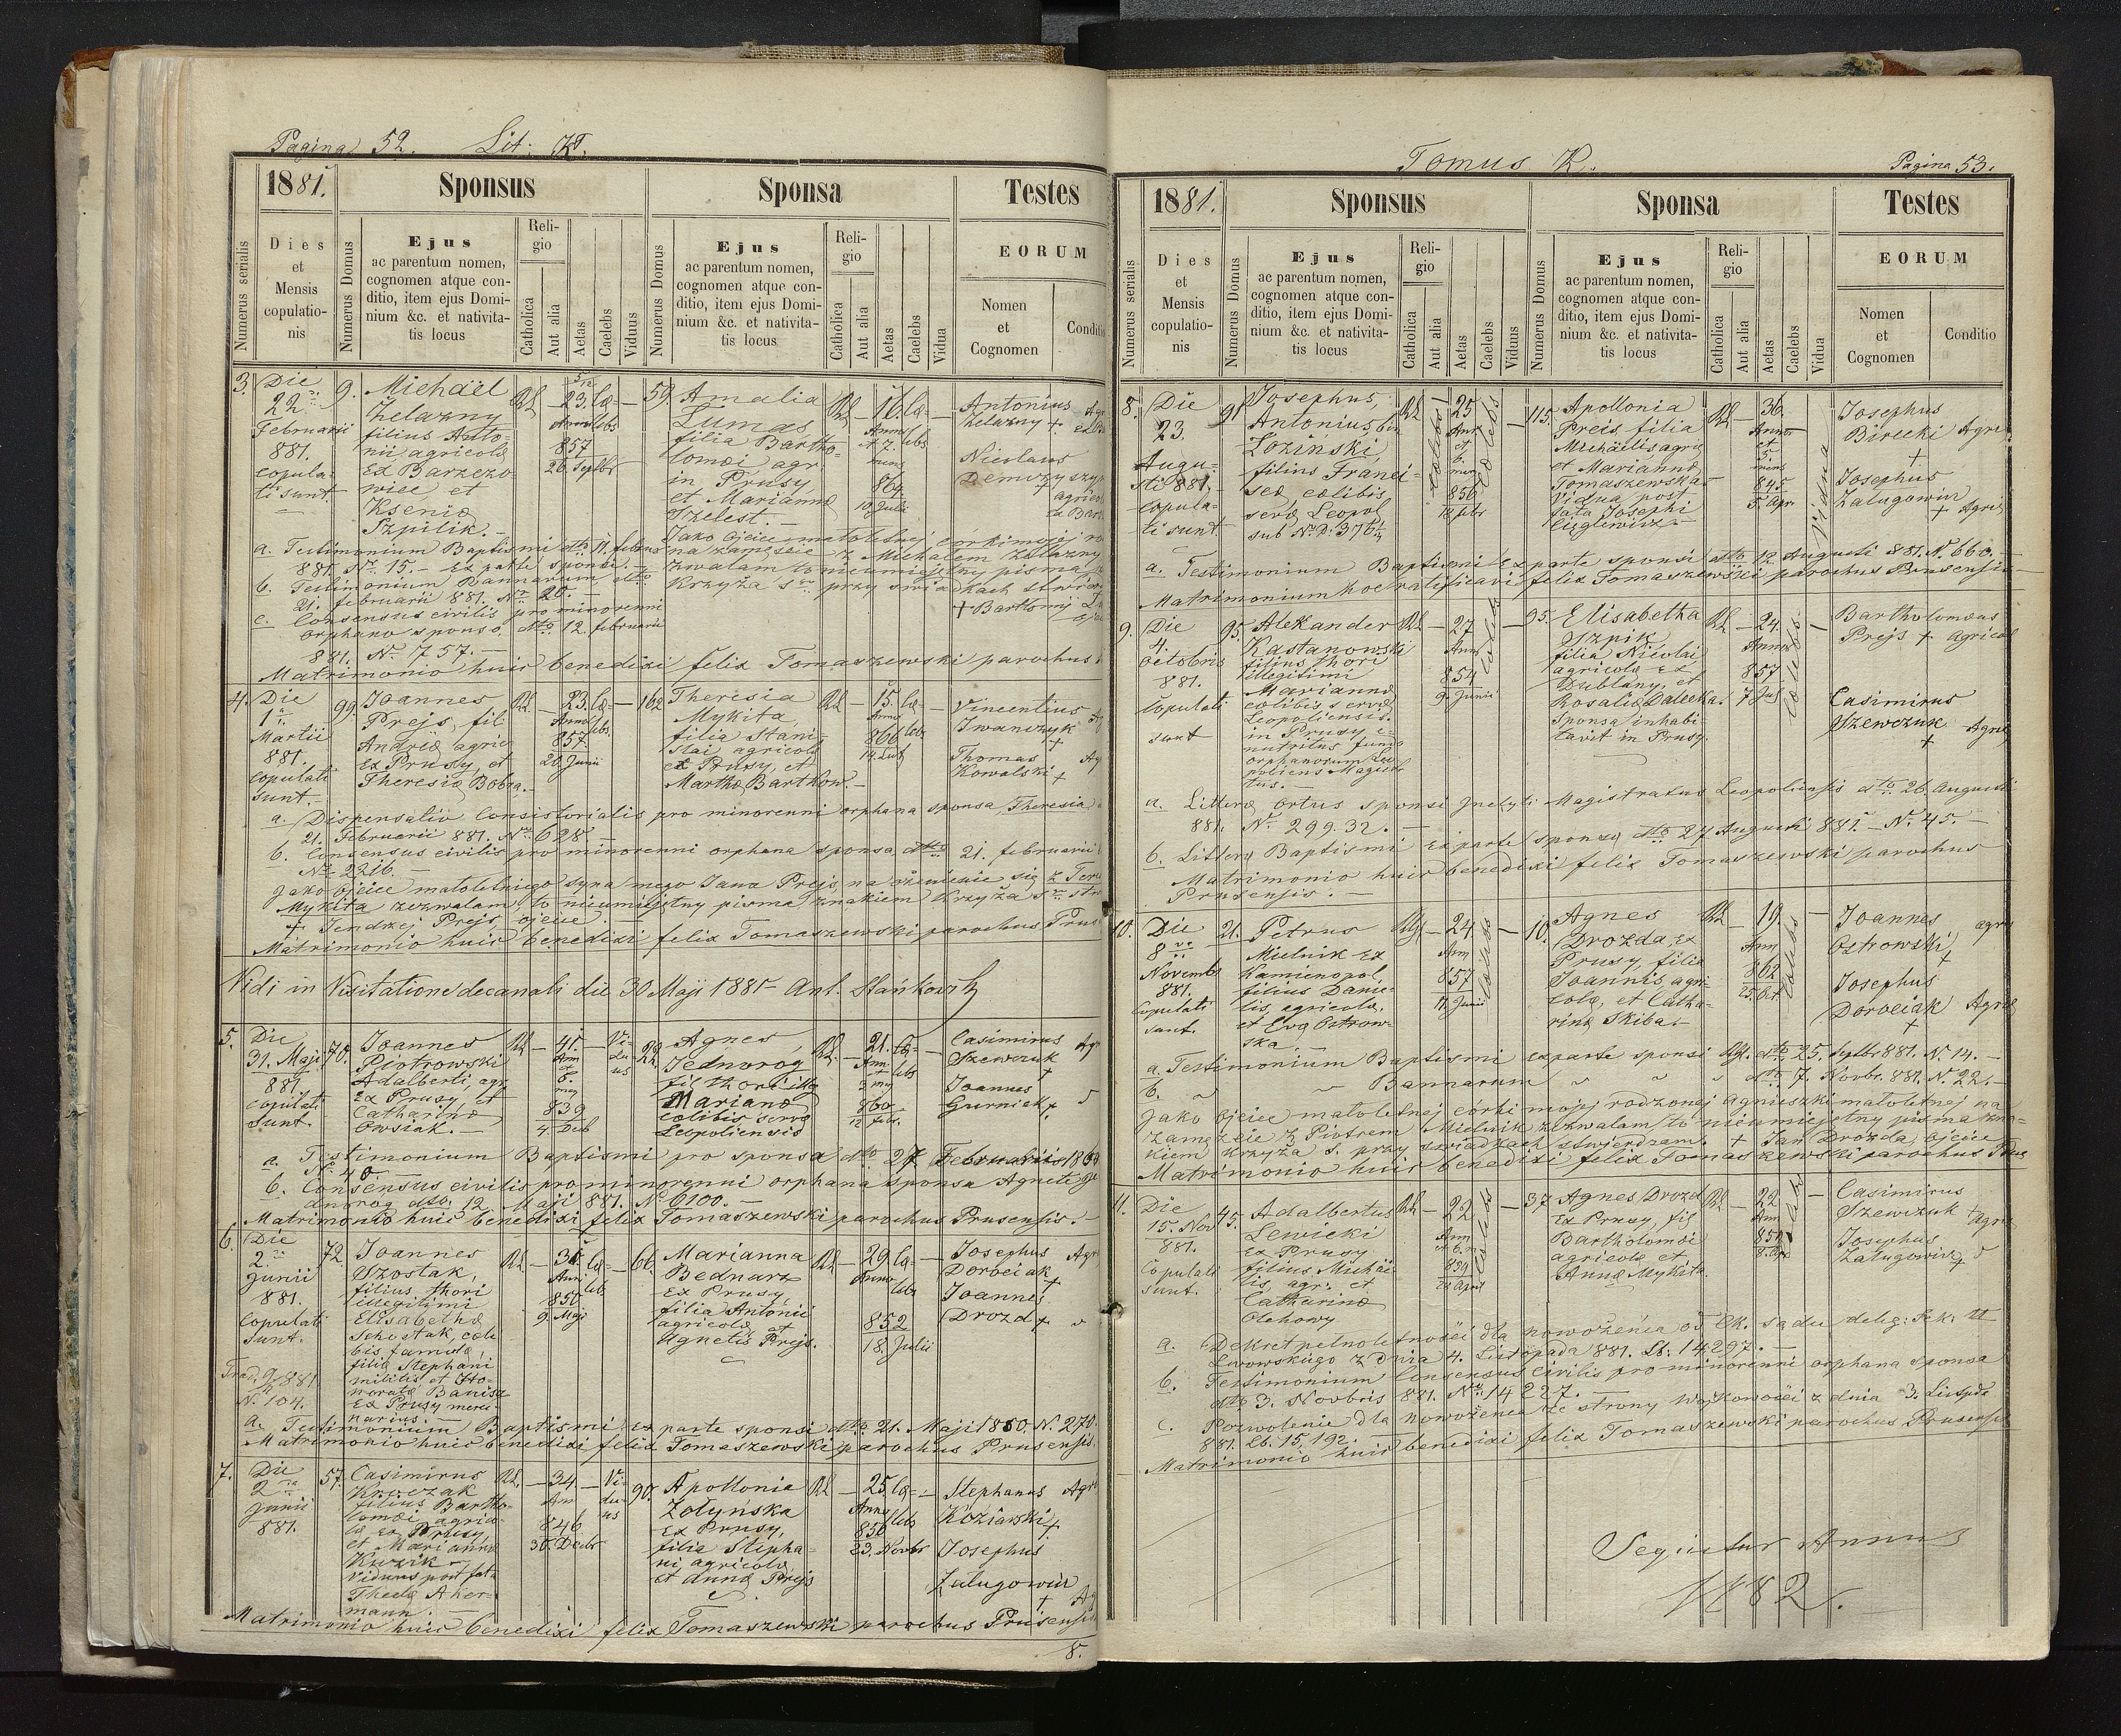 Pagina 52. Lit: K.
1881.
Sponsus
Sponsa
Testes
Numerus serialis
Dies
et
Mensis
copulatio-
nis
Numerus Domus
Ejus
ac parentum nomen,
cognomen atque con-
ditio, item ejus Domi-
nium &c. et nativita-
tis locus
Reli-
gio
Catholica
Aut alia
Aetas
Caelebs
Viduus
Numerus Domus
Ejus
ac parentum nomen,
cognomen atque con-
ditio, item ejus Domi-
nium &c. et nativita-
tis locus
Reli-
gio
Catholica
Aut alia
Aetas
Caelebs
Vidua
EORUM
Nomen
et
Cognomen
Conditio
3.
Die
22
Februarii
881.
copula-
ti sunt.
9.
Michaël
Żelazny
filius Anto-
nii agricolæ
Ex Barzczo-
wice, et
Ksenia
Szpilik.
23.
857
26. Septbr
59.
Amalia
Lumas
filia Bartho-
lomæi agr.
in Prusy
et Mariannæ
Szelest.
16.
864
19. Julii
Antonius
Żelazny +
Nicolaus
+
a. Testimonium Baptismi dto 11. febru
881. Nr. 15. – Ex parte sponsi.
b. Testimonium Bannorum dto
21. februarii 881. Nr 26.
c. Consensus civilis pro minorenni
orphano sponso. dto 12. februarii
881. Nr 757.
Jako Ojciec małoletniej córki mojej
na zamęście z Michałem Żelazny
zwalam to nieumiejętny pisma
Krzyża
+ Bartłomij
Matrimonio huic benedixi felix Tomaszewski parochus
4.
Die
1
Martii
881.
copulati
sunt.
99.
Joannes
Prejs, fil
Andreæ agric
Ex Prusy, et
Theresiæ Bobra.
23.
857
20 Junii
162
Theresia
Mykita,
filia Stani-
slai agricolæ
ex Prusy, et
Marthæ Bartkow.
15.
866
Vincentius
Iwanczyk
+
Thomas
Kowalski +
a. Dispensatio Consistorialis pro minorenni orphana sponsa, Theresia
21. Februarii 881. Nr. 628
b. Consensus civilis pro minorenni orphana sponsa dto 21. februarii
Nr 2216.
Jako Ojciec małoletniego syna mego Jana Prejs, na ożenienie się z
Mykita zezwalam to nieumiejętny pisma znakiem Krzyża
+ Jendrzej Prejs ojciec.
Matrimonio huic benedixi felix Tomaszewski parochus Prus
Vidi in Visitatione decanali die 30 Maji 1881 Ant. Stańkovity
5.
Die
31. Maji
881.
copulati
sunt.
70.
Joannes
Piotrowski
Adalberti, agr
Ex Prusy, et
Catharinæ
Owsiak.
41
839
4. Decb
Vi-
du-
us
22.
Agnes
Jednorog
fil thori illeg
Marianæ
cælibis servæ
Leopoliensis
21.
860
12 febr.
Casimirus
Szewczuk
+
Joannes
Gurniak +
a. Testimonium Baptismi pro sponsa dto 27 Februariis
b. Consensus civilis pro minorenni orphana sponsa Agneti Je
dnorog dto. 12 Maji 881. No 6100.
Matrimonio huic benedixi felix Tomaszewski parochus Prusensis.
6.
Die
2
Junii
881.
Copulati
sunt.
N. 104.
72.
Joannes
Szostak,
filius thori
illegitimi
Elisabethæ
Schostak, cæli
bis famulæ,
filiæ Stephani
militis et Ho-
noratæ
Ex Prusy merce-
narius.
850
9. Maji
66.
Marianna
Bednarz
Ex Prusy,
filia Antonii
agricolæ et
Agnetis Prejs.
29
852
18. Julii
Josephus
Dorociak
+
Joannes
Drozd +
a. Testimonium Baptismi ex parte sponsi dto 21. Maji 1850. N. 270.
Matrimonio huic benedixi felix Tomaszewski parochus Prusensis.
7.
Die
2
Junii
881.
57.
Casimirus
filius Bartho-
lomæi agrico-
læ Ex Prusy,
et Mariannæ
Kuzik
viduus post fata
Theclæ Aker-
mann.
34
846
30. Decbr
Vi-
du-
us
90.
Apollonia
Żołyńska
Ex Prusy,
filia Stepha-
ni agricolæ
et Annæ Prejs
25.
856
23. Novbr
Stephanus
Koziarski
+
Josephus
Zalugowicz
+
Matrimonio huic benedixi felix Tomaszewski parochus Prusensis
8.
Tomus K.
Pagina 53.
1881.
Sponsus
Sponsa
Testes
Numerus serialis
Dies
et
Mensis
copulatio-
nis
Numerus Domus
Ejus
ac parentum nomen,
cognomen atque con-
ditio, item ejus Domi-
nium &c. et nativita-
tis locus
Reli-
gio
Catholica
Aut alia
Aetas
Caelebs
Viduus
Numerus Domus
Ejus
ac parentum nomen,
cognomen atque con-
ditio, item ejus Domi-
nium &c. et nativita-
tis locus
Reli-
gio
Catholica
Aut alia
Aetas
Caelebs
Vidua
EORUM
Nomen
et
Cognomen
Conditio
8.
Die
23.
Augu-
sti 881.
copula-
ti sunt
91
Josephus,
Antonius, bin
Łoziński,
filius Franci-
scæ, cælibis
servæ Leopol
sub Nr. D. 376
25
856
cælebs
115.
Apollonia
Preis, filia
Michäelis agric
et Mariannæ
Tomaszewska
Vidua post
fata Josephi
Cięglewicz
36.
845
5. Apr.
Vidua
Josephus
Birecki
+
Agric
Josephus
Zalugowicz
+ Agric
a. Testimonium Baptismi ex parte sponsi dto 12 Augusti 881. N. 660.
Matrimonium hoc ratificavi felix Tomaszewski parochus Prusensis
9.
Die
4.
Octobris
881.
Copulati
sunt
95.
Alexander
Kastanowski
filius thori
illegitimi
Mariannæ
cælibis servæ
Leopoliensis.
in Prusy e-
nutritus fundo
orphanorum Leo
poliens Magistr
tus.
27
Ann
854
9. Junii
cælebs
95.
Elisabetha
Szpik
filia Nicolai
agricolæ Ex
Dublany, et
Rosaliæ Dalecka.
Sponsa inhabi-
tavit in Prusy.
24.
857
cælebs
Bartholomæus
Prejs + agricol
Casimirus
Szewczuk
+
Agric
a. Litteræ ortus sponsi Inclyti Magistratus Leopoliensis dto 26. Augusti
881. Nr. 299.32.
b. Litteræ Baptismi ex parte sponsæ dto 27 Augusti 881. – N. 45.
Matrimonio huic benedixi felix Tomaszewski parochus
Prusensis.
10.
Die
8
Novembr
881.
Copulati
sunt.
21.
Petrus
Mielnik Ex
Kamienopol,
filius Danie-
lis, agricolæ,
et Evæ Ostrow-
ska
24
Ann
857
cælebs
10.
Agnes
Drozda, Ex
Prusy, filia
Joannis, agri-
colæ, et Catha-
rinæ Skiba.
19
Ann
862
25. Oct.
cælebs
Joannes
Ostrowski,
+
agric
Josephus
Dorociak
+
Agric
a. Testimonium Baptismi ex parte sponsi dto 25. Septbr 881. N. 14.
b. " " Bannorum " " " dto 7. Novbr. 881. N. 22.
Jako Ojciec małoletnej córki mojej rodzonej Agnieszki małoletnej na
zamęzcie z Piotrem Mielnik zezwalam to nieumiejętny pisma zna-
kiem Krzyża S. przy świadkach stwierdzam. + Jan Drozda, Ojciec
Matrimonio huic benedixi felix Tomaszewski parochus Prus
11.
Die
15. Nov
881.
Copulati
sunt.
45.
Adalbertus
Lewicki
Ex Prusy
filius Michäe-
lis agr. et
Catharinæ
Olchowy
22
Ann
859
cælebs
37
Agnes Drozd
Ex Prusy, fil
Bartholomæi
agricolæ et
Annæ Mykita
22
Ann
859
cælebs
Casimirus
Szewczuk +
Agric
Josephus
Zalugowicz +
a. Dekret pełnoletności dla nowożeńca od ck. sądu deleg: Sek: II
Lwowskiego z dnia 4. Listopada 881. Lb. 14297.
b. Testimonium Consensus civilis pro minorenni orphana sponsa
dto 3. Novbris 881. Nro 14227.
c. Pozwolenie dla nowożeńca ze strony wojskowości z dnia 3. Listopda
881. Lb. 15,192.
Matrimonio huic benedixi felix Tomaszewski parochus Prusensis
Sequintur Annus
1882.